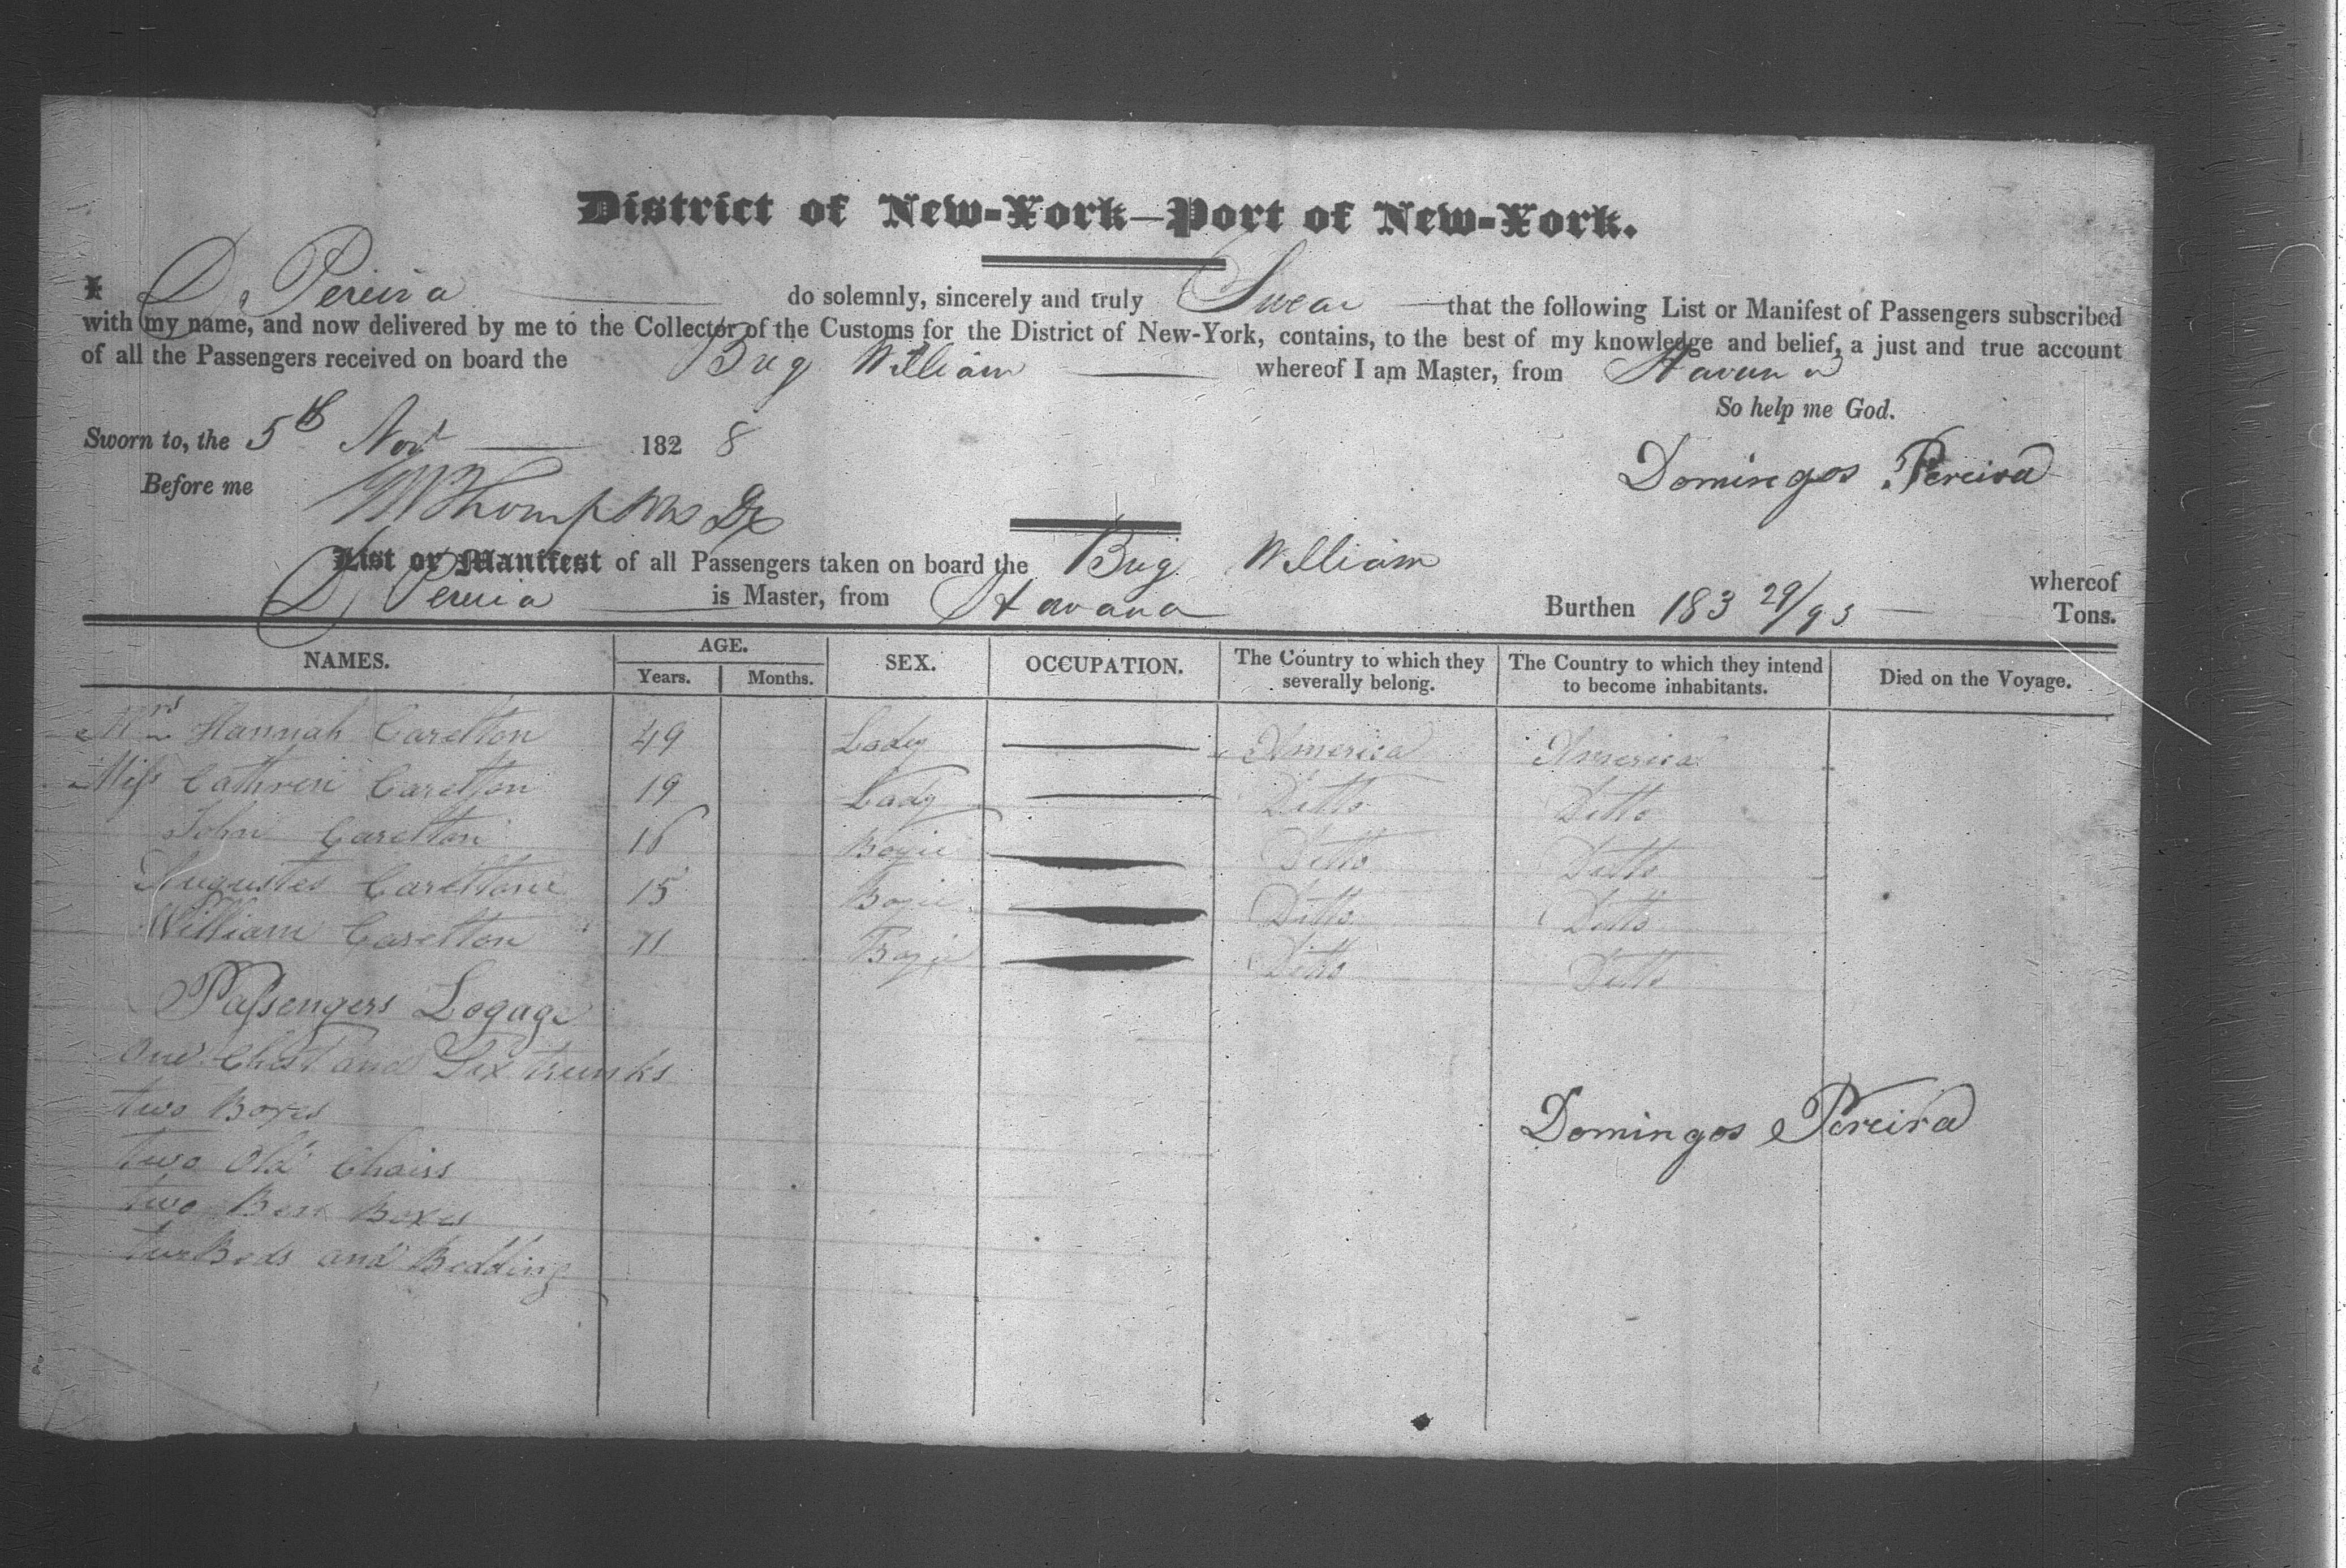 District of New-York—Port of New-York.
I D. Pereira do solemnly, sincerely and truly Swear that the following List or Manifest of Passengers subscribed
with my name, and now delivered by me to the Collector of the Customs for the District of New-York, contains, to the best of my knowledge and belief, a just and true account
of all the Passengers received on board the Brig William whereof I am Master, from Havana
So help me God.
Sworn to, the 5th Novr 1828
Domingos Pereira
Before me
List or Manifest of all Passengers taken on board the Brig William whereof
D Pereira is Master, from Havana Burthen 183 29/95 Tons.
NAMES. AGE. Years. Months. SEX. OCCUPATION. The Country to which they severally belong. The Country to which they intend to become inhabitants. Died on the Voyage.
Mrs Hannah Carelton 49 Lady America America
Miss Cathren Carelton 19 Lady Ditto Ditto
John Carelton 16 Boyie Ditto Ditto
Augustes Carelton 15 Boyie Ditto Ditto
William Carelton 11 Boyie Ditto Ditto
Passengers Logage
One Chest and Six trunks
two Boxes
two Old Chairs
two Boxes
two Beds and Bedding
Domingos Pereira